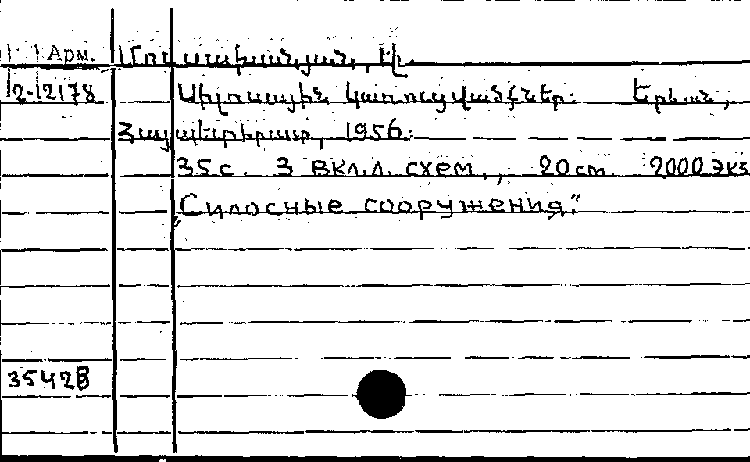 Арм. Մուսախանյան, Էլ.
2-2178 Սիլոսային կառուցվածքներ: Երևան,
Հայպետհրատ, 1956:
35 с. 3 вкл.л. схем., 20 cm 2000 экз
„Силосные сооружения."
3542В